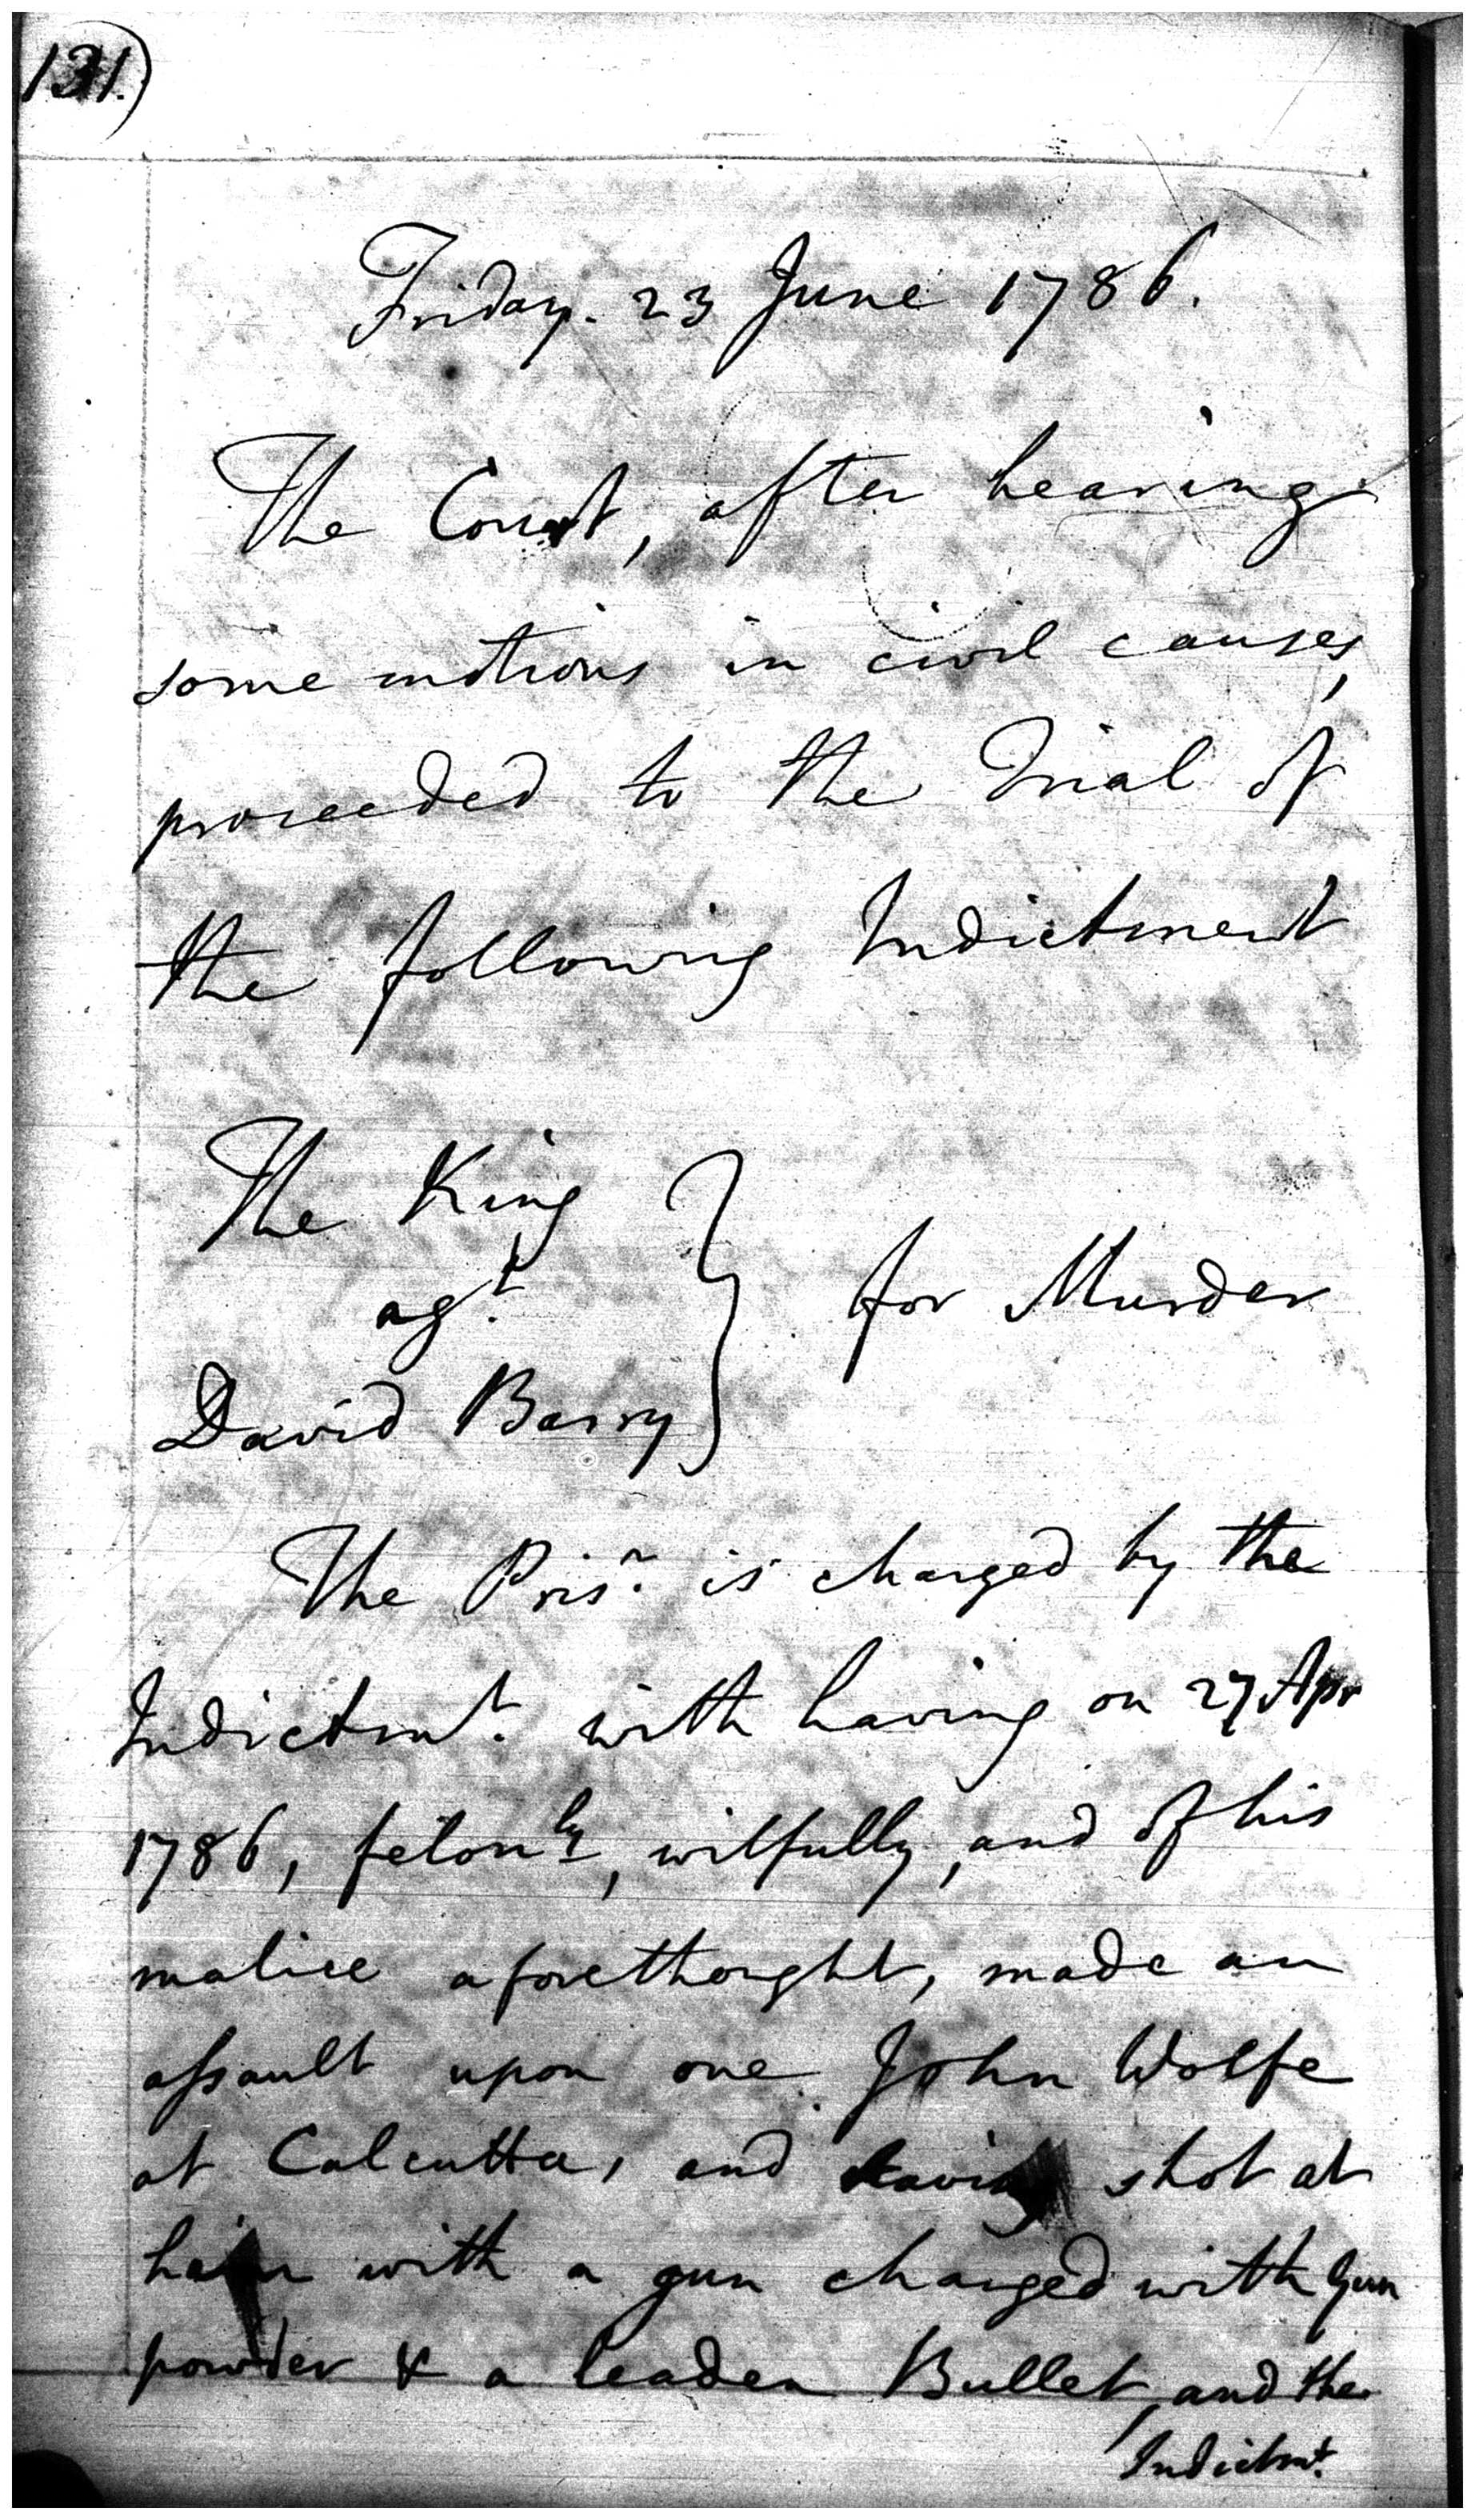 131.)
Friday. 23 June 1786.
The Court, after hearing
some motions in civil causes,
proceeded to the Trial of
the following Indictment
The King
agt.
David Barry
for Murder
The Prisr. is charged by the
Indictmt. with having on 27 Apr
1786, felonly, wilfully, and of his
malice aforethought, made an
assault upon one John Wolfe
at Calcutta, and having shot at
him with a gun charged with Gun
powder & a leaden Bullet, and the
Indictmt.